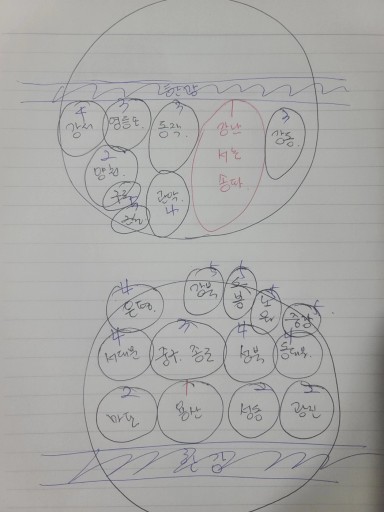 한강
4 3 3 1 3
강서 영등포 동작 강남 강동
서초
송파
2
양천
구로 5
관악
4
금천
5 5
4 강북 도봉 5
은평 노원 5
중랑
4 3 4 4
서대문 중구 종로 성북 동대문
2 1 2 2
마포 용산 성동 광진
한강